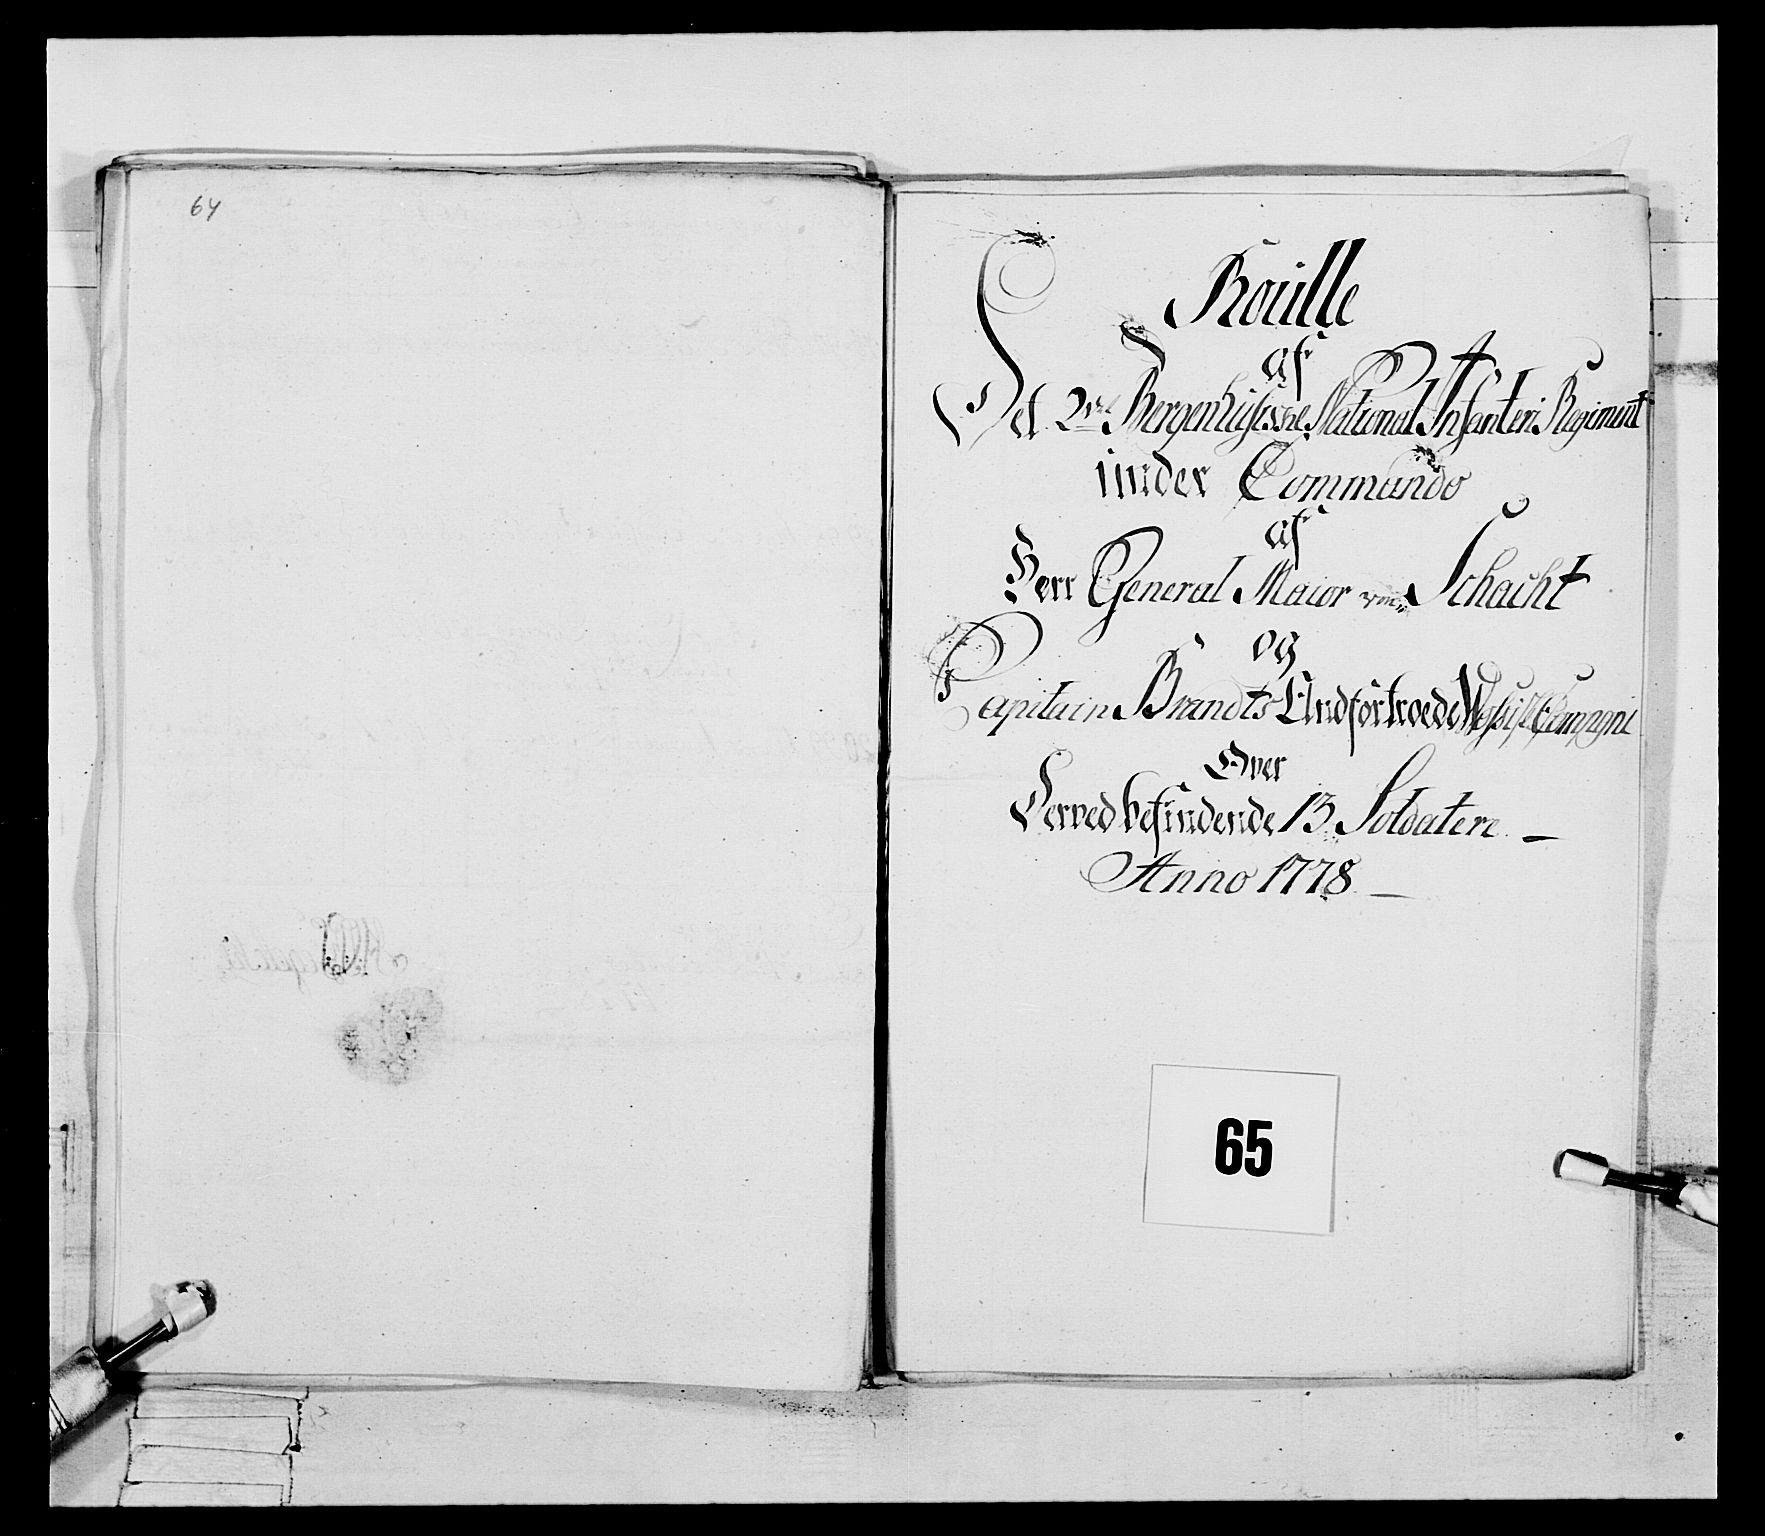 64
Roulle
af
Det 2det Bergenhusisske National Infanteri Regiment
under Commando
af
Herr General Maior von Schacht
og
Capitain Brandts Andfortroede Compagni
Over
Derved befindende 13 Soldatere
Anno 1778
65